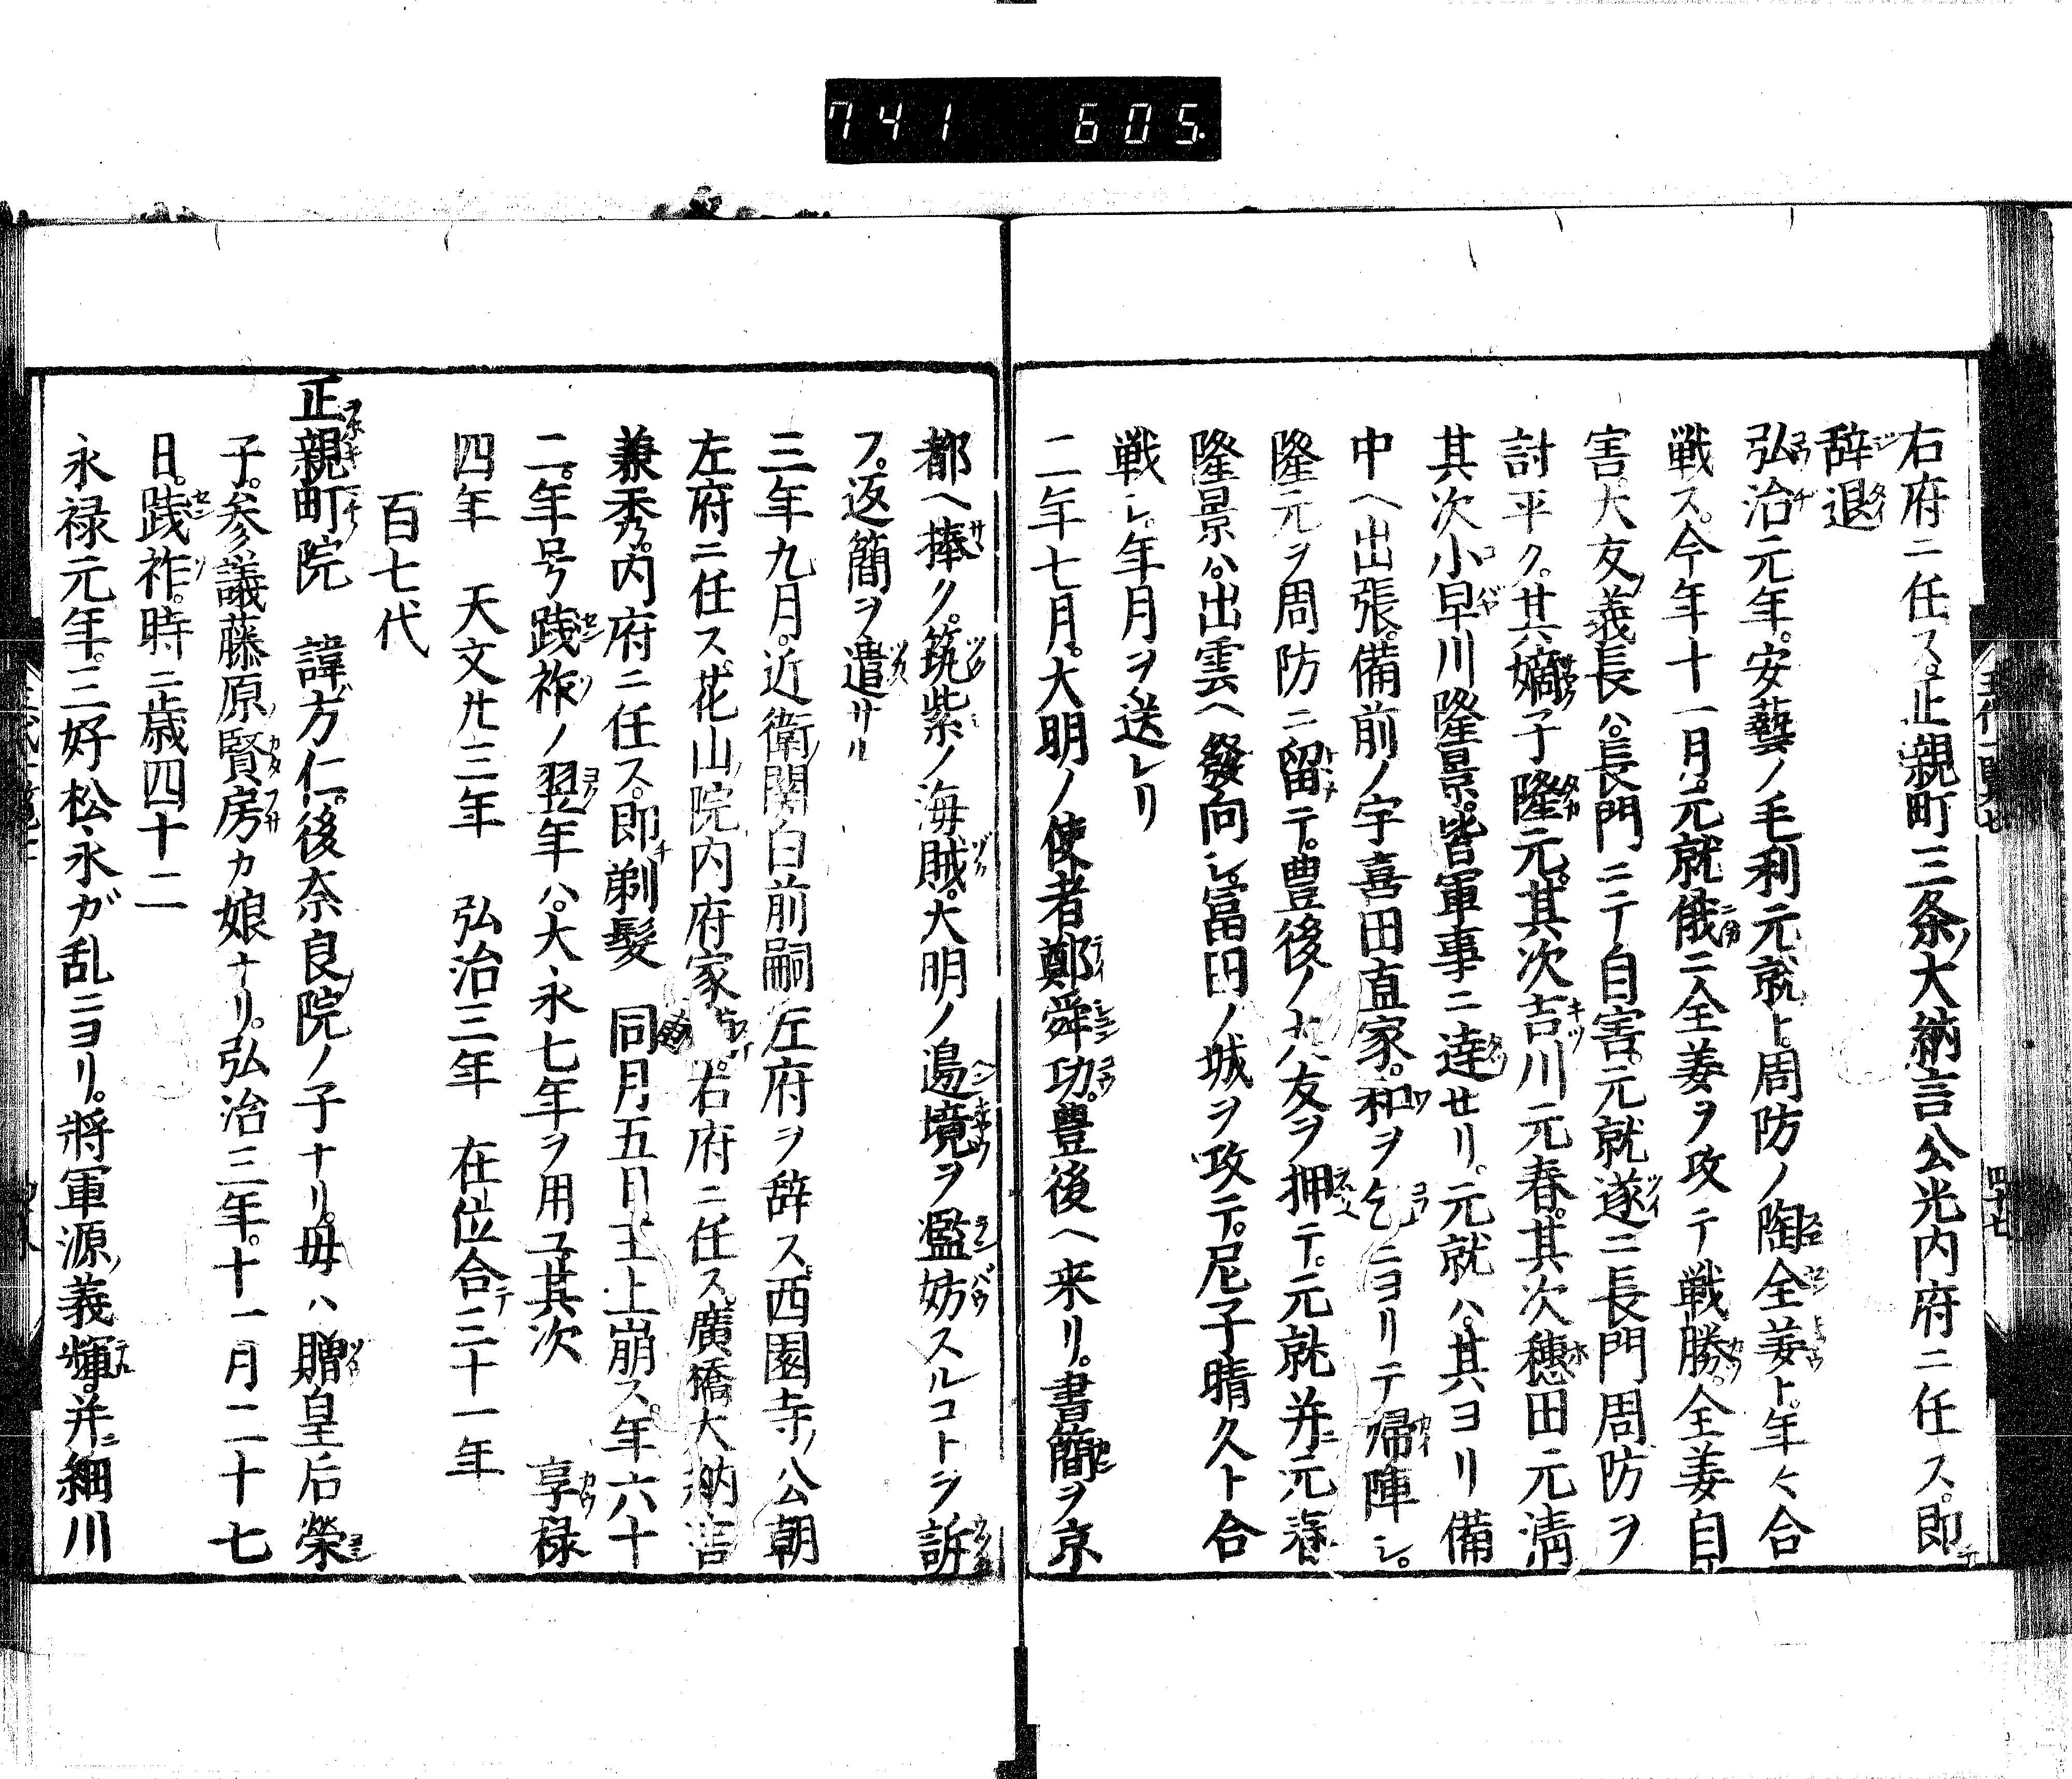 741 605.
右府ニ任ス。正親町三条ノ大納言公光内府ニ任ス。即
辞退
弘治元年。安藝ノ毛利元就ト。周防ノ陶全姜ト。年々合
戦ス。今年十一月。元就俄ニ全姜ヲ攻テ戦勝。全姜自
害。大友義長ハ。長門ニテ自害。元就遂ニ長門周防ヲ
討平ク。其嫡子隆元。其次吉川元春。其次穂田元清
其次小早川隆景。皆軍事ニ達セリ。元就ハ。其ヨリ備
中ヘ出張。備前ノ宇喜田直家。和ヲ乞ニヨリテ帰陣シ。
隆元ヲ周防ニ留テ。豊後ノ大友ヲ押テ。元就并ニ元春
隆景ハ。出雲ヘ發向シ。富田ノ城ヲ攻テ。尼子晴久ト合
戦シ。年月ヲ送レリ
二年七月。大明ノ使者鄭舜功。豊後ヘ来リ。書簡ヲ京
都ヘ捧ク。筑紫ノ海賊。大明ノ邉境ヲ濫妨スルコトヲ訴
フ。返簡ヲ遣サル
三年九月。近衛関白前嗣左府ヲ辞ス。西園寺ノ公朝
左府ニ任ス。花山院内府家 右府ニ任ス。廣橋大納言
兼秀。内府ニ任ス。即剃髪 同月五日。主上崩ス。年六十
二。年号践祚ノ翌年ハ。大永七年ヲ用ユ。其次 享禄
四年 天文廿三年 弘治三年 在位合テ三十一年
百七代
正親町院 諱方仁。後奈良院ノ子ナリ。母ハ贈皇后榮
子。参議藤原賢房カ娘ナリ。弘治三年。十一月二十七
日。践祚。時ニ歳四十二
永禄元年。三好松永ガ乱ニヨリ。將軍源義輝。并ニ細川